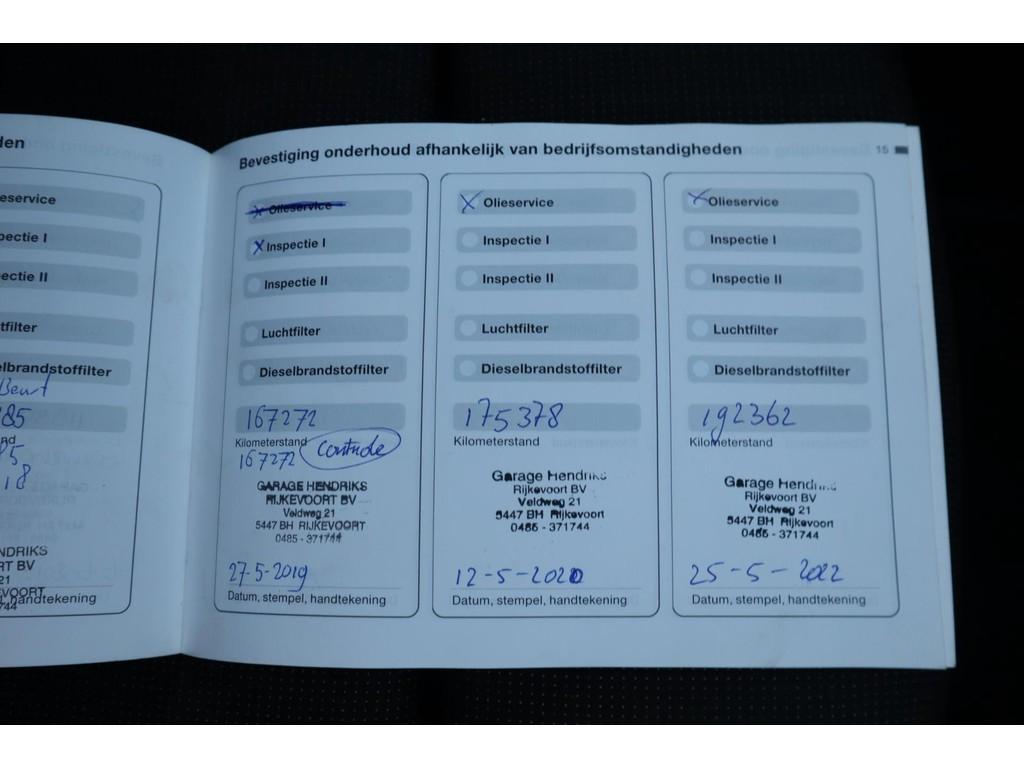 den
Bevestiging onderhoud afhankelijk van bedrijfsomstandigheden
15
eservice
pectie I
ectie II
tfilter
elbrandstoffilter
85
18
NDRIKS
RT BV
21
VOORT
744
handtekening
Olieservice
Inspectie I
Inspectie II
Luchtfilter
Dieselbrandstoffilter
167272
Kilometerstand
167272
GARAGE HENDRIKS
RIJKEVOORT BV
Veldweg 21
5447 BH RIJKEVOORT
0485 - 371744
27-5-2019
Datum, stempel, handtekening
X Olieservice
Inspectie I
Inspectie II
Luchtfilter
Dieselbrandstoffilter
175378
Kilometerstand
Garage Hendriks
Rijkevoort BV
Veldweg 21
5447 BH Rijkevoort
0485 - 371744
12-5-2020
Datum, stempel, handtekening
X Olieservice
Inspectie I
Inspectie II
Luchtfilter
Dieselbrandstoffilter
192362
Kilometerstand
Garage Hendriks
Rijkevoort BV
Veldweg 21
5447 BH Rijkevoort
0485 - 371744
25-5-2022
Datum, stempel, handtekening